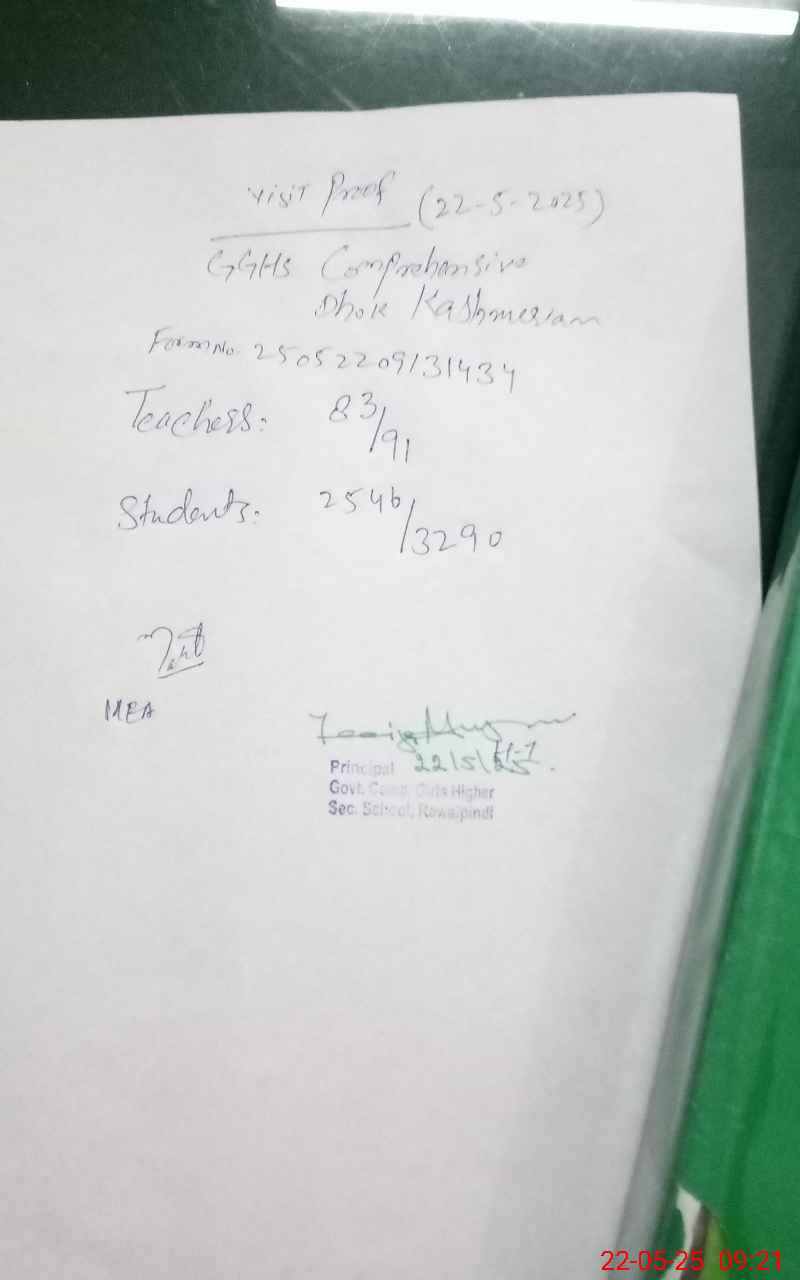 Visit Proof (22-5-2025)
GGHS Comprehensive
Dhok Kashmerian
Form No. 25052209131434
Teachers: 83/91
Students: 2546/3290
MEA
Principal 22/5/25.
Govt. Comp. Girls Higher
Sec. School, Rawalpindi
22-05-25 09:21